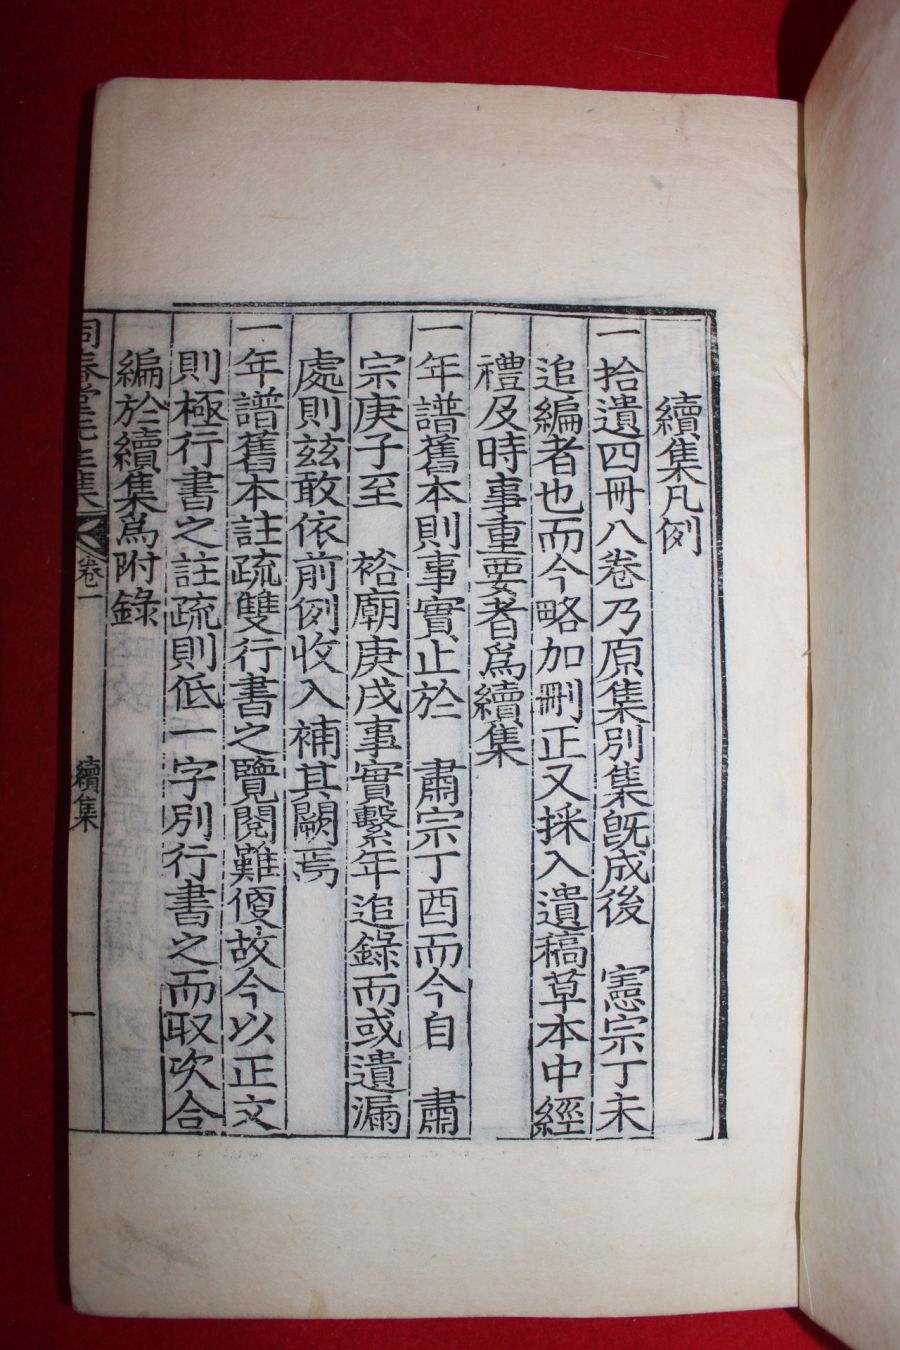 續集凡例
一拾遺四冊八卷乃原集別集旣成後　憲宗丁未
追編者也而今略加刪正又採入遺稿草本中經
禮及時事重要者爲續集
一年譜舊本則事實止於　肅宗丁酉而今自　肅
宗庚子至　祫廟庚戌事實繫年追錄而或遺漏
處則玆敢依前例收入補其闕焉
一年譜舊本註疏雙行書之覽閱難便故今以正文
則極行書之註疏則低一字別行書之而取次合
編於續集爲附錄
同春堂先生集　卷一　續集　一